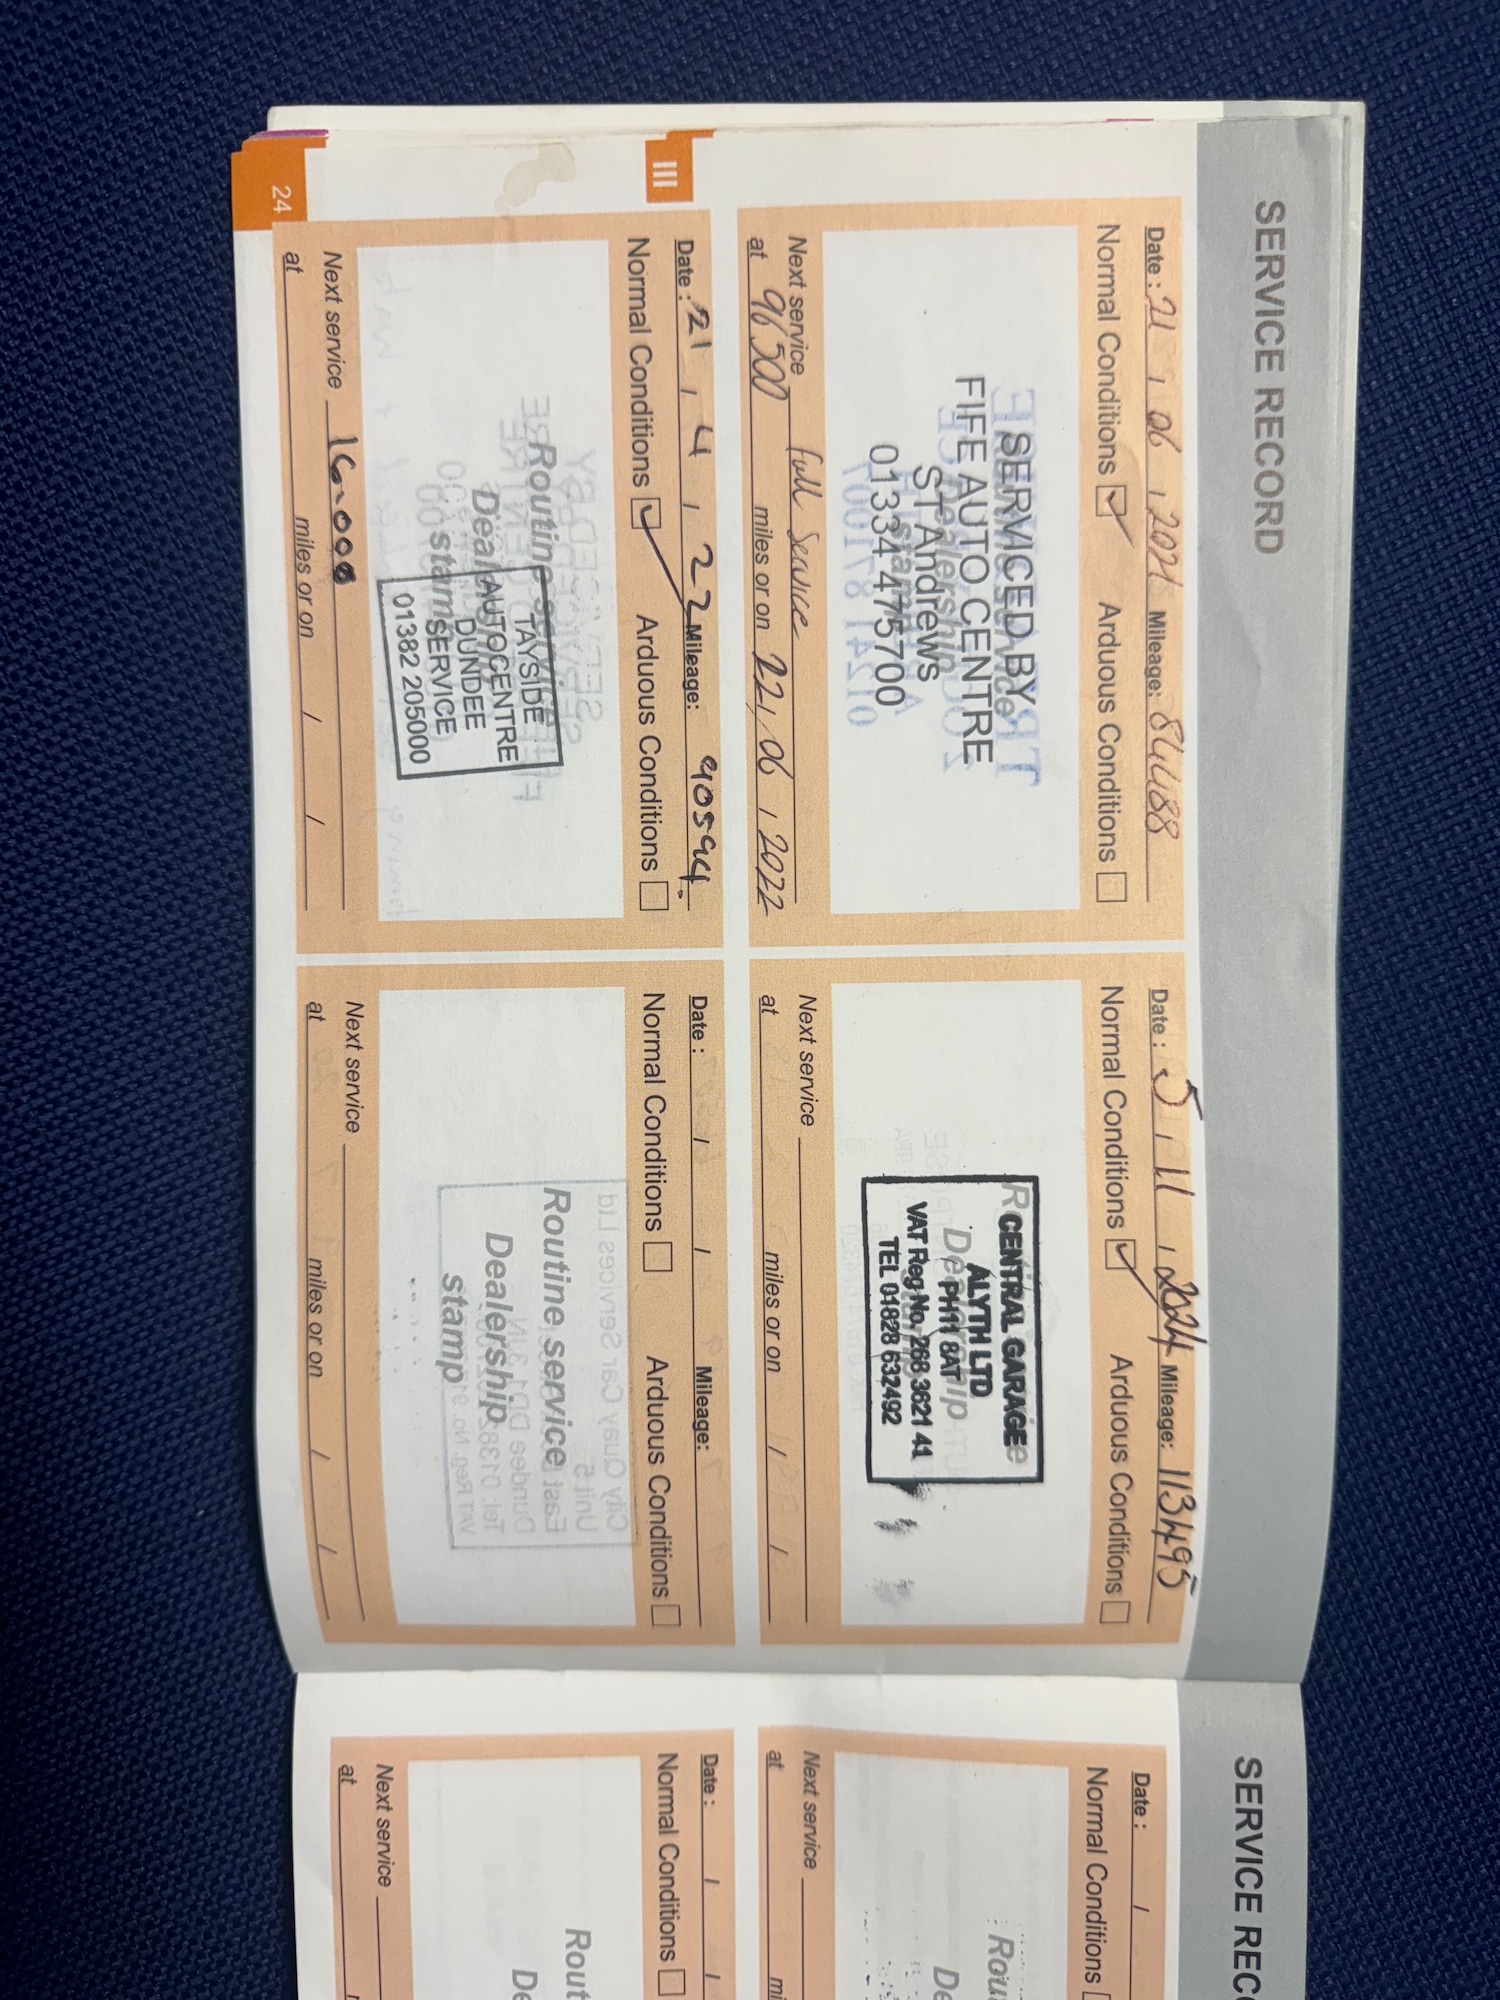 SERVICE RECORD
Date : 21 / 06 / 2021 Mileage: 84488
Normal Conditions ☑ Arduous Conditions ☐
SERVICED BY
FIFE AUTO CENTRE
ST Andrews
01334 475700
Next service Full Service
at 96500 miles or on 22 / 06 / 2022
Date : 5 / 11 / 2024 Mileage: 113495
Normal Conditions ☑ Arduous Conditions ☐
CENTRAL GARAGE
ALYTH LTD
PH11 8AT
VAT Reg No. 268 3621 41
TEL 01828 632492
Next service
at miles or on / /
III
Date : 21 / 4 / 22 Mileage: 90594.
Normal Conditions ☑ Arduous Conditions ☐
Routine service
Dealership
stamp
TAYSIDE
AUTOCENTRE
DUNDEE
SERVICE
01382 205000
Next service 16-000
at miles or on / /
Date : / / Mileage:
Normal Conditions ☐ Arduous Conditions ☐
Routine service
Dealership
stamp
Next service
at miles or on / /
24
SERVICE REC
Date : /
Normal Conditions
Rou
De
Next service
at mi
Date : / /
Normal Conditions ☐
Rout
De
Next service
at